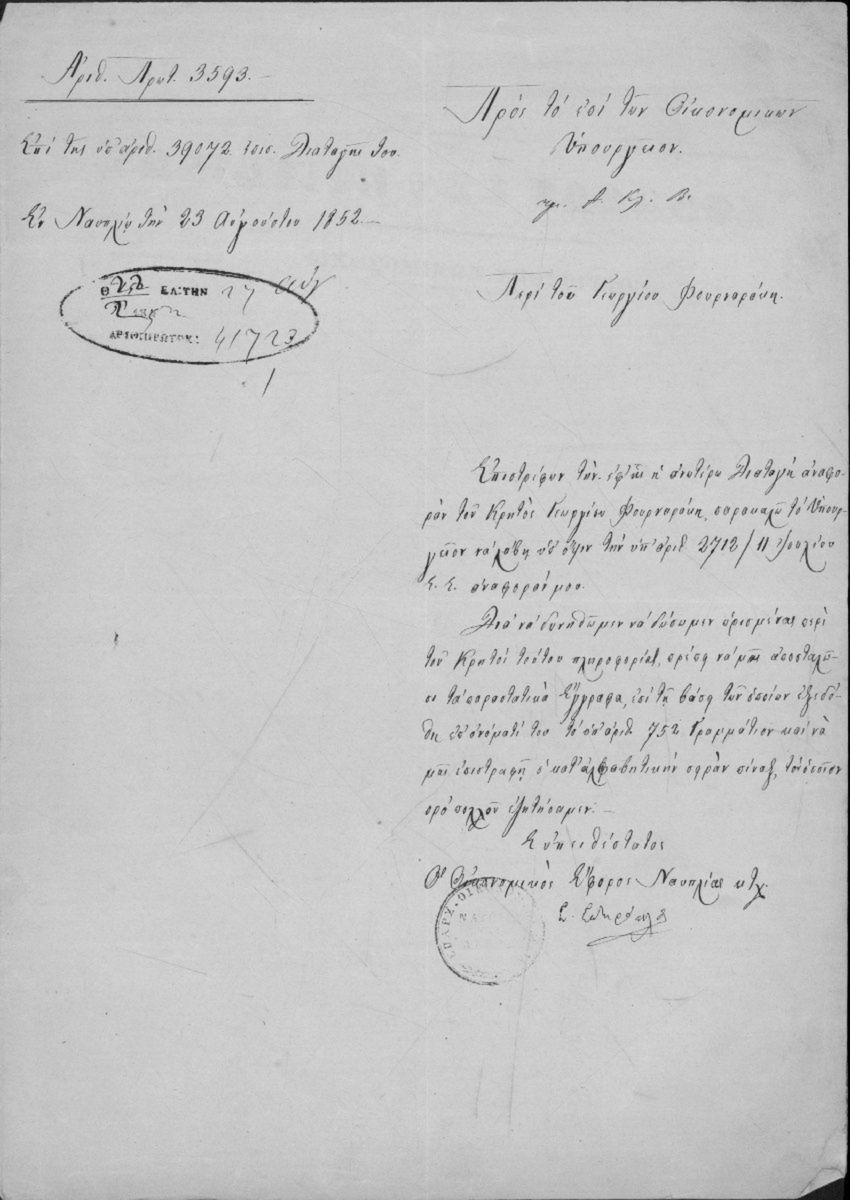 Αριθ. Πρωτ. 3593.
Επί της υπ' αριθ. 39072. επισ. Διαταγής του.
Εν Ναυπλίῳ την 23 Αυγούστου 1852.
ΕΛ: ΤΗΝ 27 Αύγ
ΑΡΙΘ: ΠΡΩΤΟΚ: 41723
Πρός τό επί των Οικονομικων
Υπουργειον.
Περί τοῦ Γεωργίου Φουρναράκη.
Επιστρέφων την εφ' ης η ανωτέρω Διαταγή αναφο-
ράν τοῦ Κρητός Γεωργίου Φουρναράκη, παρακαλῶ τό Υπουρ-
γεῖον να λάβῃ υπ' όψιν την υπ' αριθ. 2712/11 Ιουλίου
ε. ε. αναφοράν μου.
Διά να δυνηθῶμεν να δώσωμεν ωρισμένας περί
τοῦ Κρητός τούτου πληροφορίας, πρέπει να μας αποσταλῶ-
σι τα παραστατικά έγγραφα, επί τῇ βάσει των οποίων εξεδό-
θη επ' ονόματί του τό υπ' αριθ. 752 Γραμμάτιον και να
μας επιστραφῇ ο κατ' αλφαβητικήν σειράν πίναξ, τον οποίον
προ πολλοῦ εζητήσαμεν.
Ευπειθέστατος
Ο Οικονομικός Έφορος Ναυπλίας κτλ.